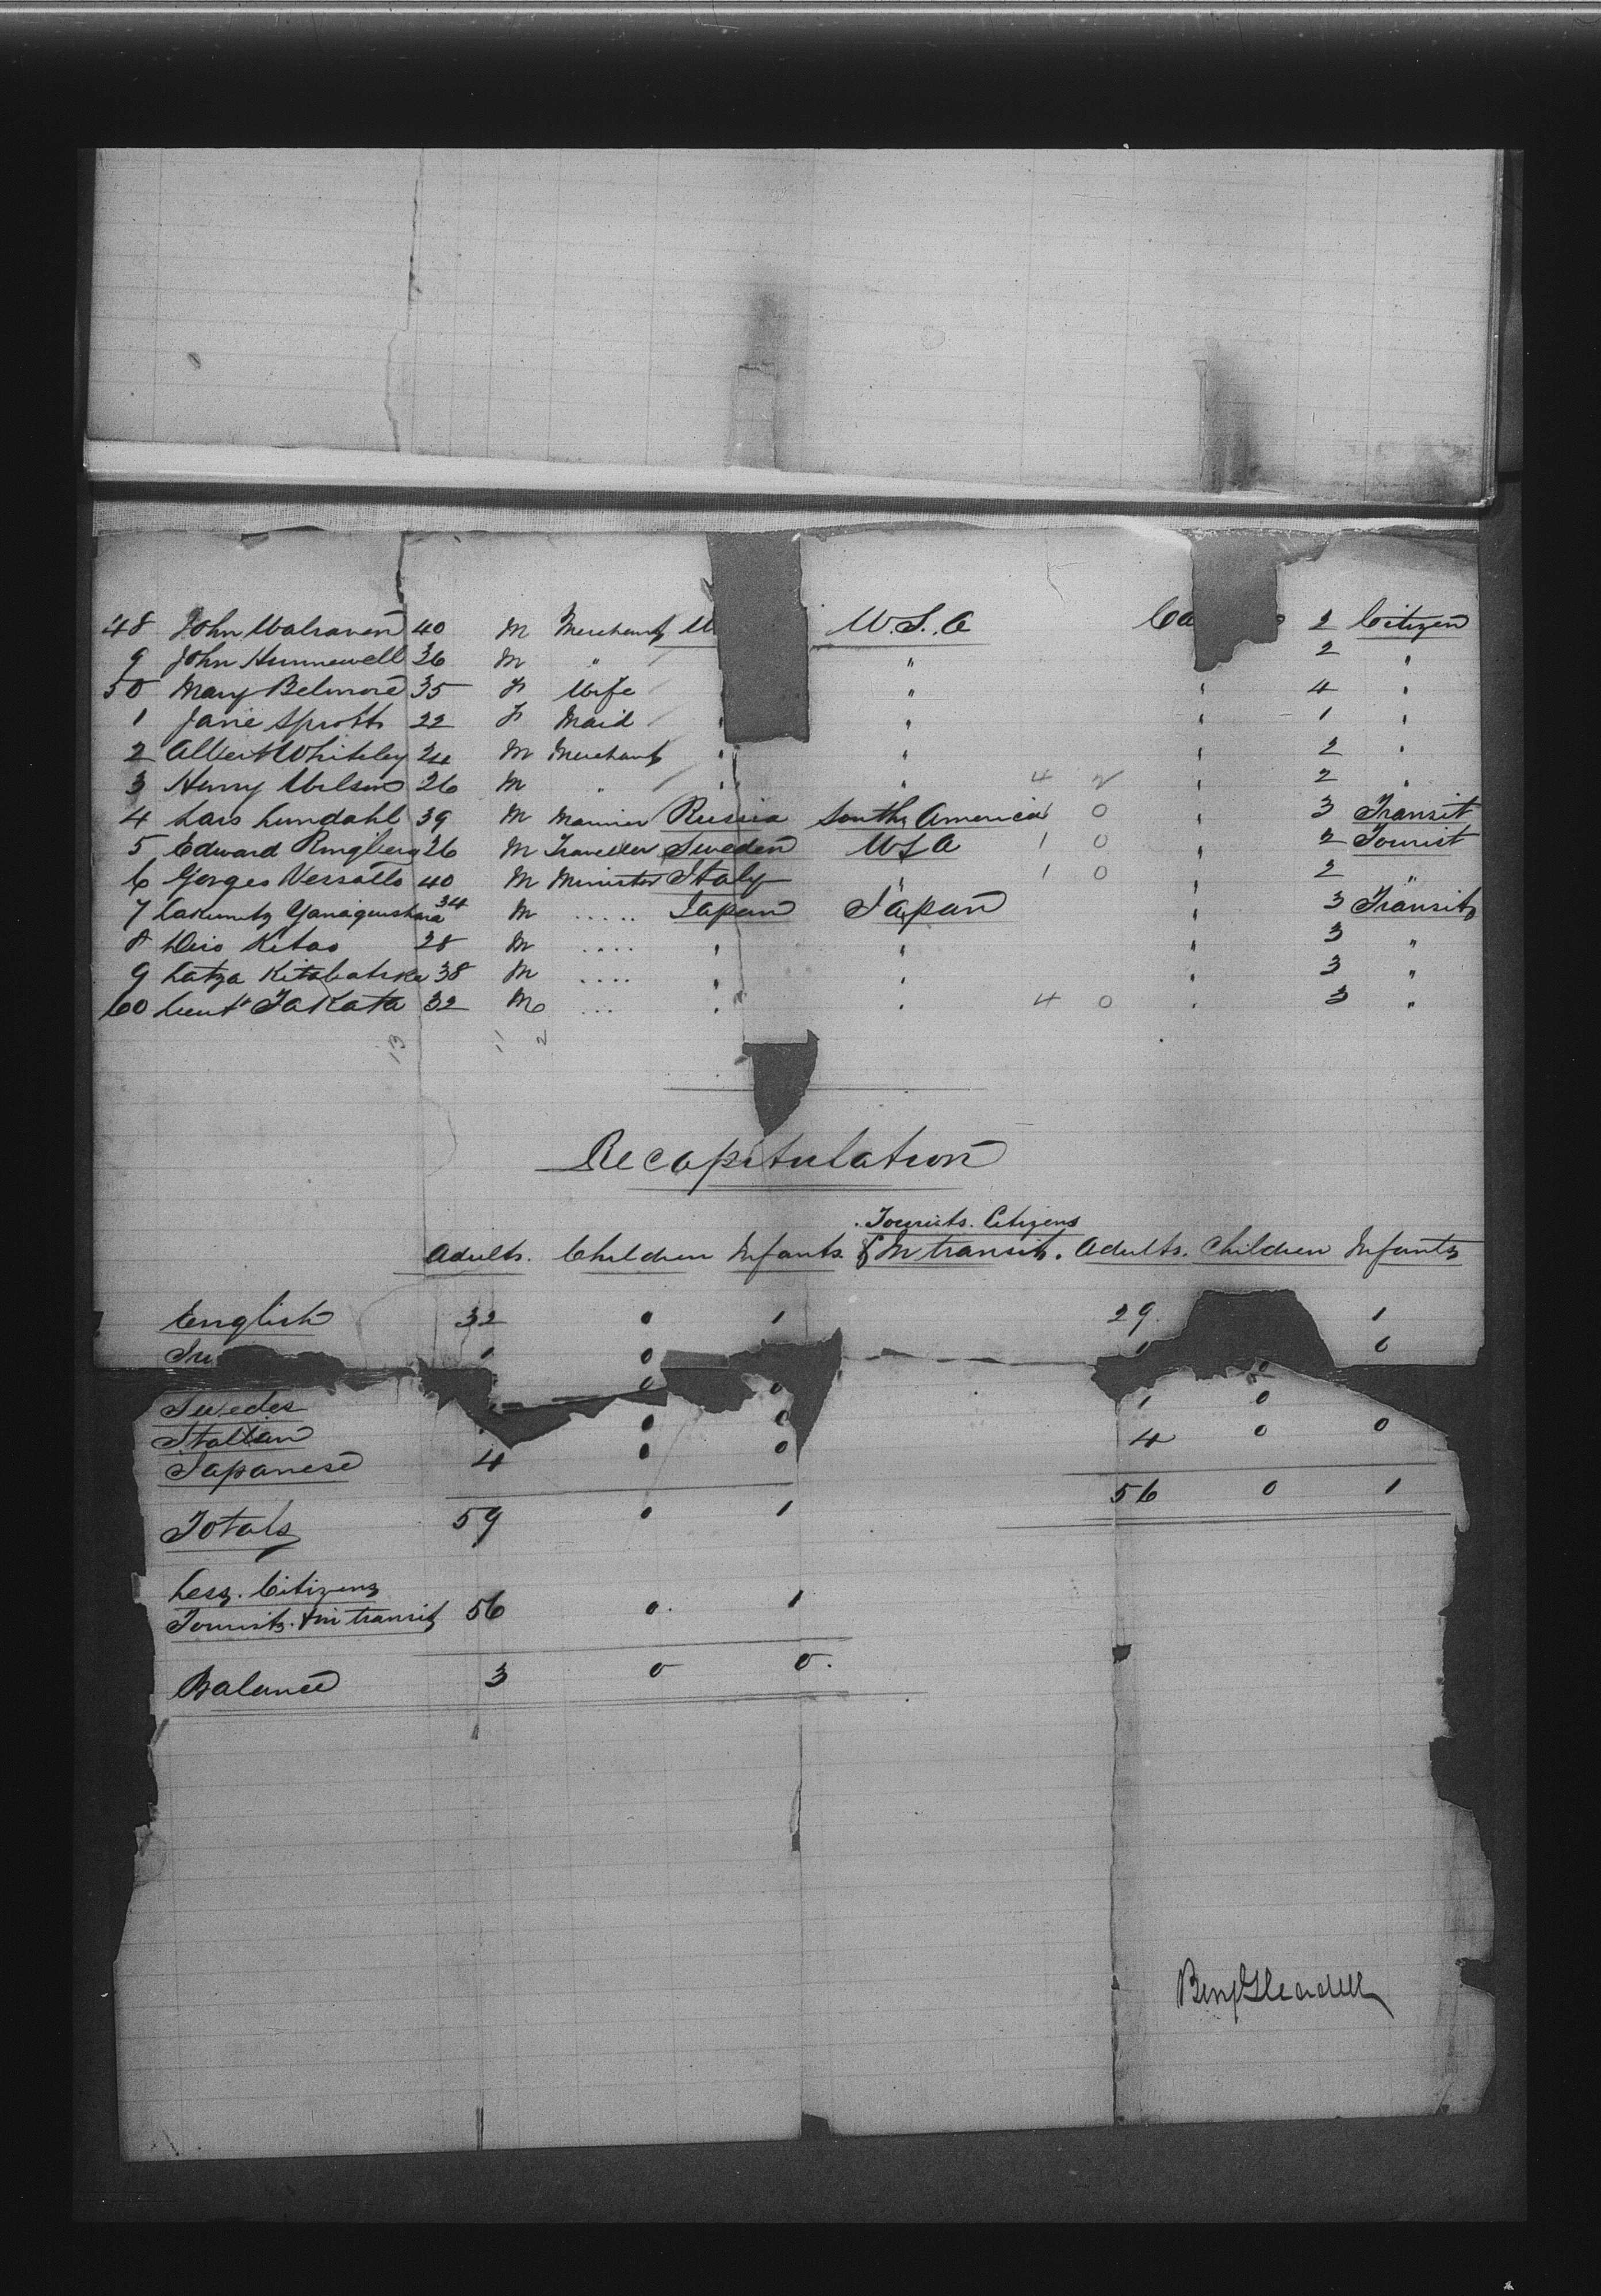 48 John Walraven 40 M Merchant U W.S.A Ca 2 Citizen
9 John Hunnewell 36 M " " 2 "
50 Mary Belmore 35 F Wife " " 4 "
1 Jane Sprott 22 F Maid " " " 1 "
2 Albert Whiteley 24 M Merchant " " " 2 "
3 Henry Wilson 26 M " " " 4 2 " 2 "
4 Lars Lundahl 39 M Mariner Russia South America 0 " 3 Transit
5 Edward Ringberg 26 M Traveller Sweden USA 1 0 " 2 Tourist
6 Georges 40 M Minister Italy " 1 0 " 2 "
7 34 M ..... Japan Japan " 3 Transit
8 Kitao 28 M .... " " " 3 "
9 38 M .... " " " 3 "
60 Lieut Takata 32 M ... " " 4 0 " 3 "
13 11 2
Recapitulation
Tourists. Citizens
Adults. Children Infants & In transit. Adults. Children Infants
English 32 0 1 29 1
0 0
Swedes 0 1 0
Italian 0 0
Japanese 4 0 0 4 0 0
Totals 59 0 1 56 0 1
Less. Citizens
Tourists. & in transit 56 0. 1
Balance 3 0 0.